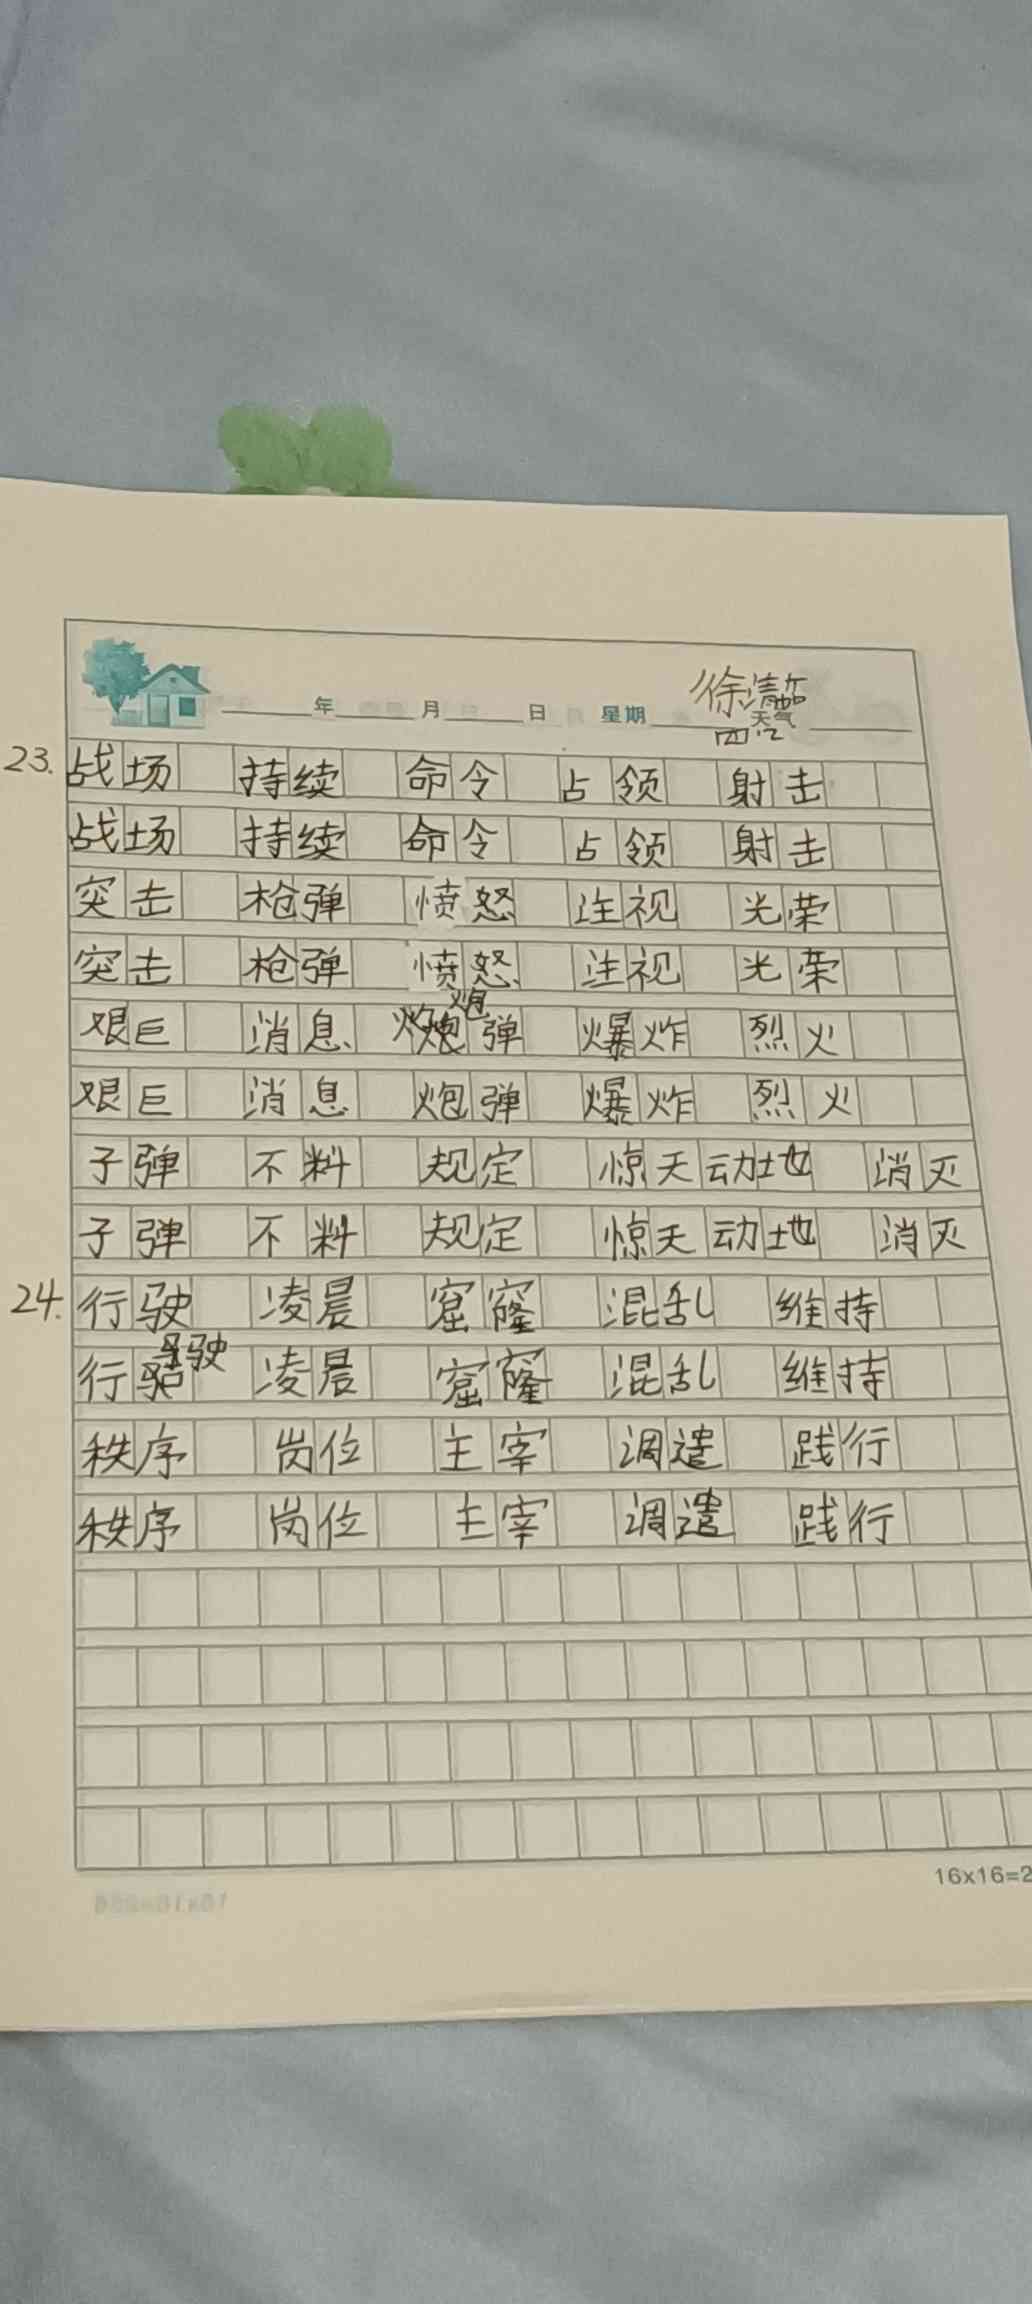 年 月 日 星期 天气
徐清
四
23. 战场 持续 命令 占领 射击
战场 持续 命令 占领 射击
突击 枪弹 愤怒 注视 光荣
突击 枪弹 愤怒 注视 光荣
炮
艰巨 消息 炮弹 爆炸 烈火
艰巨 消息 炮弹 爆炸 烈火
子弹 不料 规定 惊天动地 消灭
子弹 不料 规定 惊天动地 消灭
24. 行驶 凌晨 窟窿 混乱 维持
驶
行 凌晨 窟窿 混乱 维持
秩序 岗位 主宰 调遣 践行
秩序 岗位 主宰 调遣 践行
16x16=2